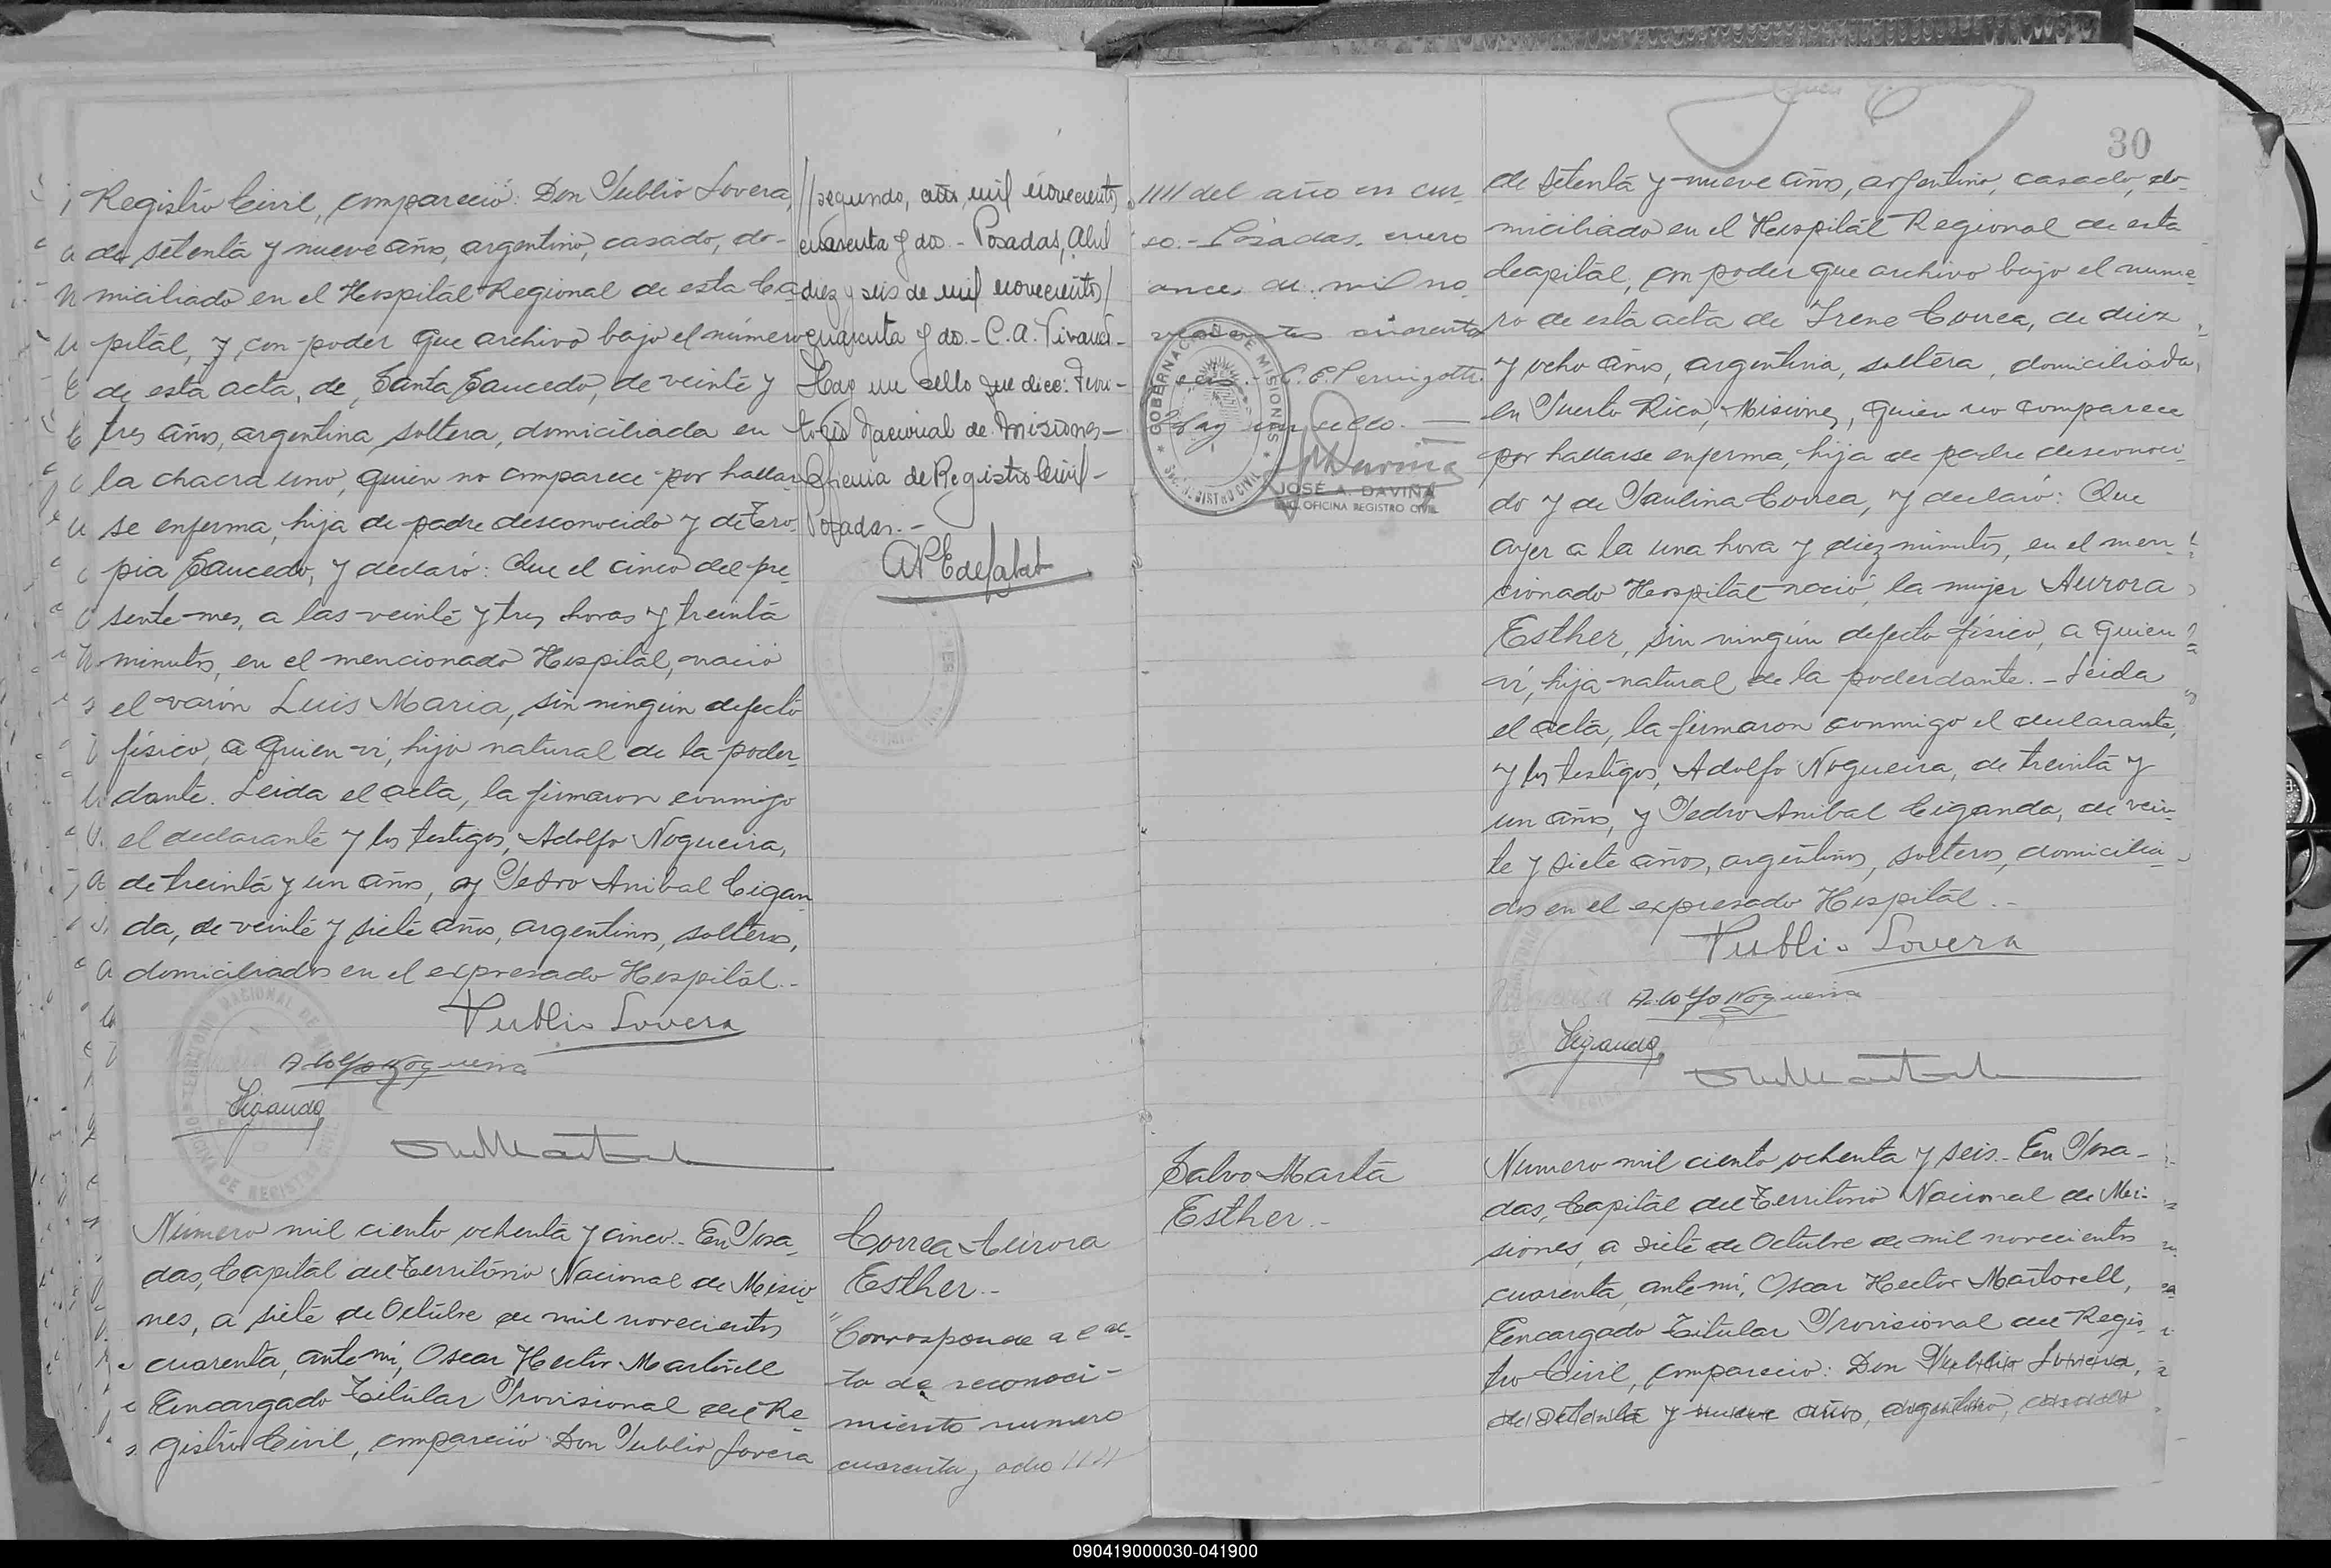 Registro Civil, compareció: Don Publio Lovera,
de setenta y nueve años, argentino, casado, do-
miciliado en el Hospital Regional de esta Ca-
pital, y con poder que archivo bajo el número
de esta acta, de, Santa Saucedo, de veinte y
tres años, argentina soltera, domiciliada en
la chacra uno, quien no comparece por hallar
se enferma, hija de padre desconocido y de Pro
pia Saucedo, y declaró: Que el cinco del pre-
sente mes, a las veinte y tres horas y treinta
minutos, en el mencionado Hospital, nació
el varón Luis Maria, sin ningún defecto
físico, a quien vi, hijo natural de la poder-
dante. Leida el acta, la firmaron conmigo
el declarante y los testigos, Adolfo Nogueira,
de treinta y un años, y Pedro Anibal Cigan
da, de veinte y siete años, argentinos, solteros,
domiciliados en el expresado Hospital.-
Publio Lovera
Adolfo Nogueira
Ciganda
Número mil ciento ochenta y cinco.- En Posa-
das, Capital del Territorio Nacional de Misio
nes, a siete de Octubre de mil novecientos
cuarenta, ante mi, Oscar Hector Martorell
Encargado Titular Provisional del Re-
gistro Civil, compareció Don Publio Lovera
//segundo, año mil novecientos
cuarenta y dos.- Posadas, Abril
diez y seis de mil novecientos
cuarenta y dos.- C. A.
Hay un sello que dice: Terri-
torio Nacional de Misiones-
Oficina de Registro Civil-
Posadas.-
Correa Aurora
Esther.-
"Corresponde al ac-
ta de reconoci-
miento numero
cuarenta y ocho ////
//// del año en cur-
so.- Posadas, enero
once de mil no-
vecientos cuarenta
Hay un sello.-
GOBERNACION DE MISIONES
REGISTRO CIVIL
JOSÉ A. DAVIÑA
OFICINA REGISTRO CIVIL
Salvo Marta
Esther.-
30
de setenta y nueve años, argentino, casado, do-
miciliado en el Hospital Regional de esta
Capital, con poder que archivo bajo el nume-
ro de esta acta de Irene Correa, de diez
y ocho años, argentina, soltera, domiciliada,
en Puerto Rico, Misiones, quien no comparece
por hallarse enferma, hija de padre desconoci-
do y de Paulina Correa, y declaró: Que
ayer a la una hora y diez minutos, en el men-
cionado Hospital nació, la mujer Aurora
Esther, sin ningún defecto físico, a quien
vi, hija natural de la poderdante.- Leida
el acta, la firmaron conmigo el declarante,
y los testigos, Adolfo Nogueira, de treinta y
un años, y Pedro Anibal Ciganda, de vein-
te y siete años, argentinos, solteros, domicilia-
dos en el expresado Hospital.-
Publio Lovera
Adolfo Nogueira
Ciganda
Numero mil ciento ochenta y seis.- En Posa-
das, Capital del Territorio Nacional de Mi-
siones, a siete de Octubre de mil novecientos
cuarenta, ante mi, Oscar Hector Martorell,
Encargado Titular Provisional del Regis-
tro Civil, compareció: Don Publio Lovera,
de setenta y nueve años, argentino, casado
090419000030-041900